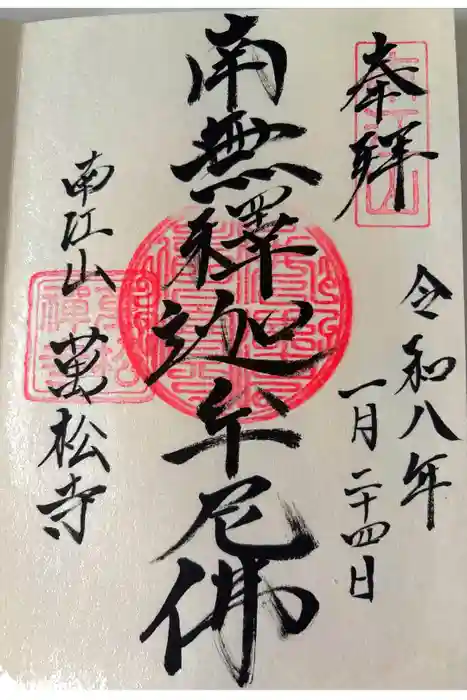 奉拝
令和八年
一月二十四日
南無釋迦牟尼佛
南江山 萬松寺
南江山